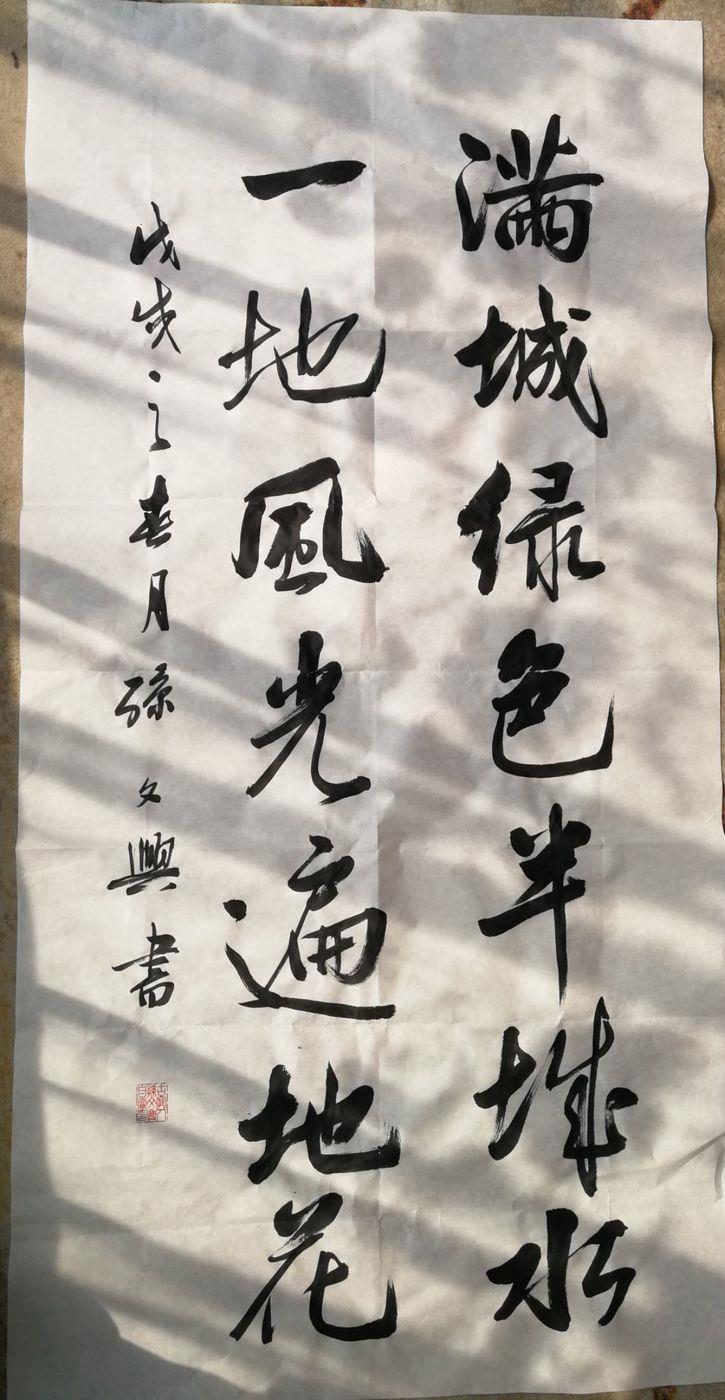 满城绿色半城水
一地風光遍地花
戊戌之春月孫文興書